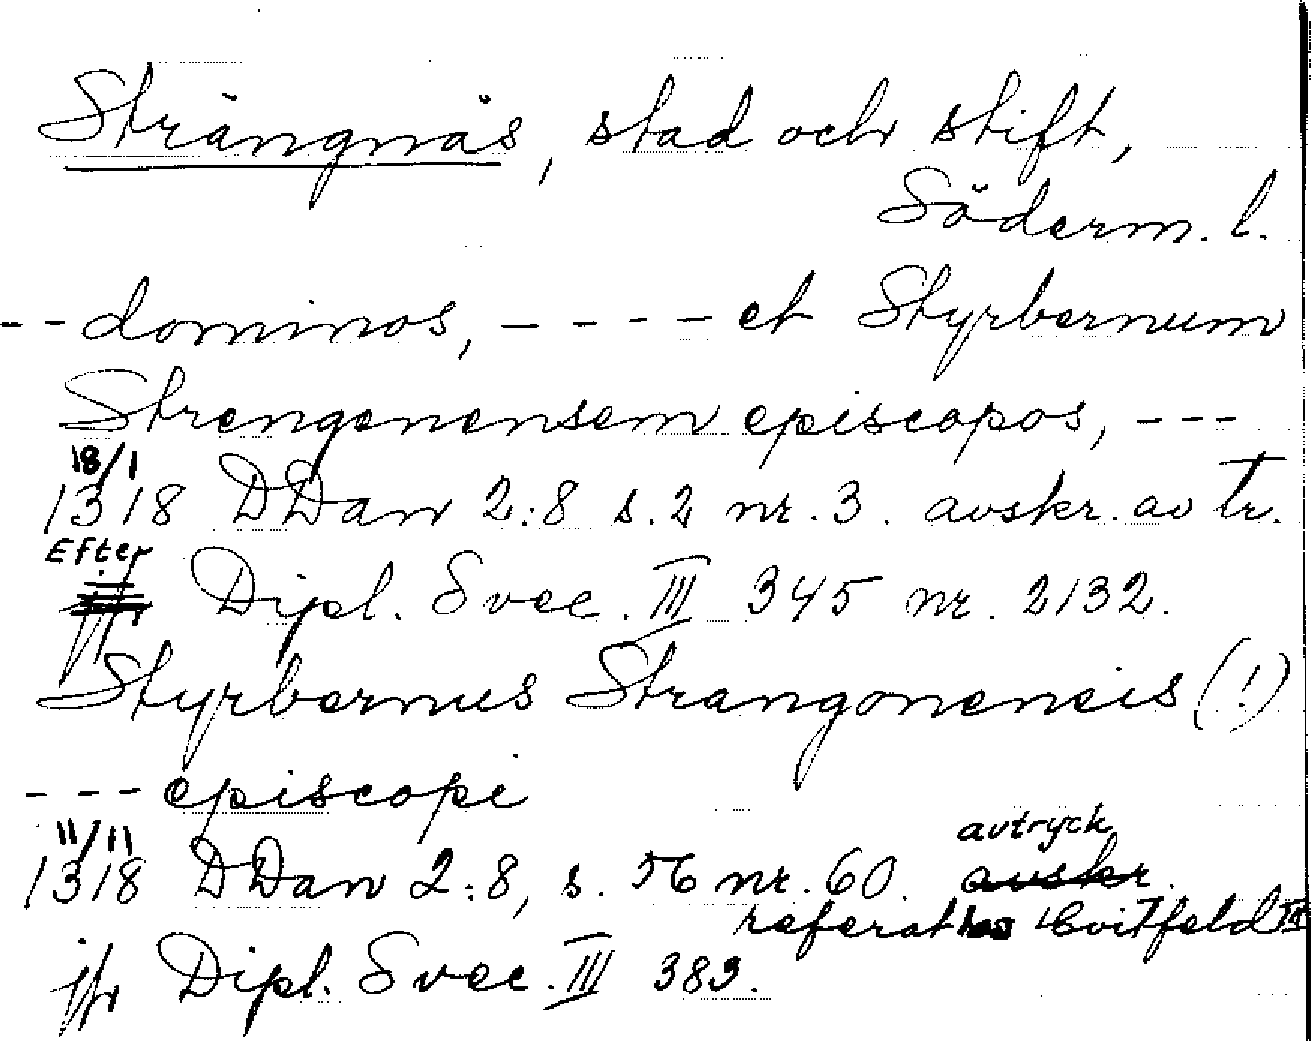 Strängnäs, stad och stift,
Söderm. l.
-- dominos, ---- et Styrbernum
Strengenensem episcopos, ---
18/1
1318 DDan 2:8 s. 2 nr. 3. avskr. av tr.
Efter
jfr Dipl. Svec. III 345 nr. 2132.
Styrbernus Strangonensis (!)
--- episcopi
11/11 avtryck
1318 DDan 2:8, s. 56 nr. 60 avskr.
referat hos Hvitfeld
jfr Dipl. Svec. III 383.